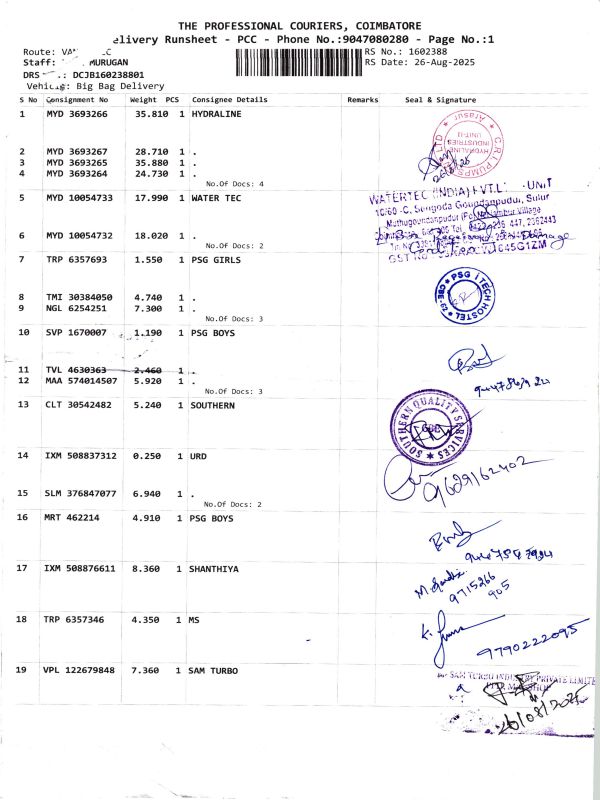 THE PROFESSIONAL COURIERS, COIMBATORE
elivery Runsheet - PCC - Phone No.:9047080280 - Page No.:1
Route: VA
RS No.: 1602388
Staff: MURUGAN
RS Date: 26-Aug-2025
DRS .: DCJB160238801
Vehicle: Big Bag Delivery
S No Consignment No Weight PCS Consignee Details Remarks Seal & Signature
1 MYD 3693266 35.810 1 HYDRALINE
2 MYD 3693267 28.710 1 .
3 MYD 3693265 35.880 1 .
4 MYD 3693264 24.730 1 .
No.Of Docs: 4
C.R.I. PUMPS LTD
HYDRALINE INDUSTRIES UNIT-II
Arasur
5 MYD 10054733 17.990 1 WATER TEC
WATERTEC (INDIA) PVT.L UNIT
10/60 -C, Sengoda Goundanpudur, Sulur
6 MYD 10054732 18.020 1 .
No.Of Docs: 2
7 TRP 6357693 1.550 1 PSG GIRLS
8 TMI 30384050 4.740 1 .
9 NGL 6254251 7.300 1 .
No.Of Docs: 3
PSG iTECH HOSTEL
10 SVP 1670007 1.190 1 PSG BOYS
11 TVL 4630363 2.460 1 .
12 MAA 574014507 5.920 1 .
No.Of Docs: 3
13 CLT 30542482 5.240 1 SOUTHERN
SOUTHERN QUALITY SERVICES
CBE
14 IXM 508837312 0.250 1 URD
15 SLM 376847077 6.940 1 .
No.Of Docs: 2
9629162402
16 MRT 462214 4.910 1 PSG BOYS
17 IXM 508876611 8.360 1 SHANTHIYA
9715266
905
18 TRP 6357346 4.350 1 MS
9790222095
19 VPL 122679848 7.360 1 SAM TURBO
SAM TURBO INDUSTRY PRIVATE LIMITE
26/08/2025